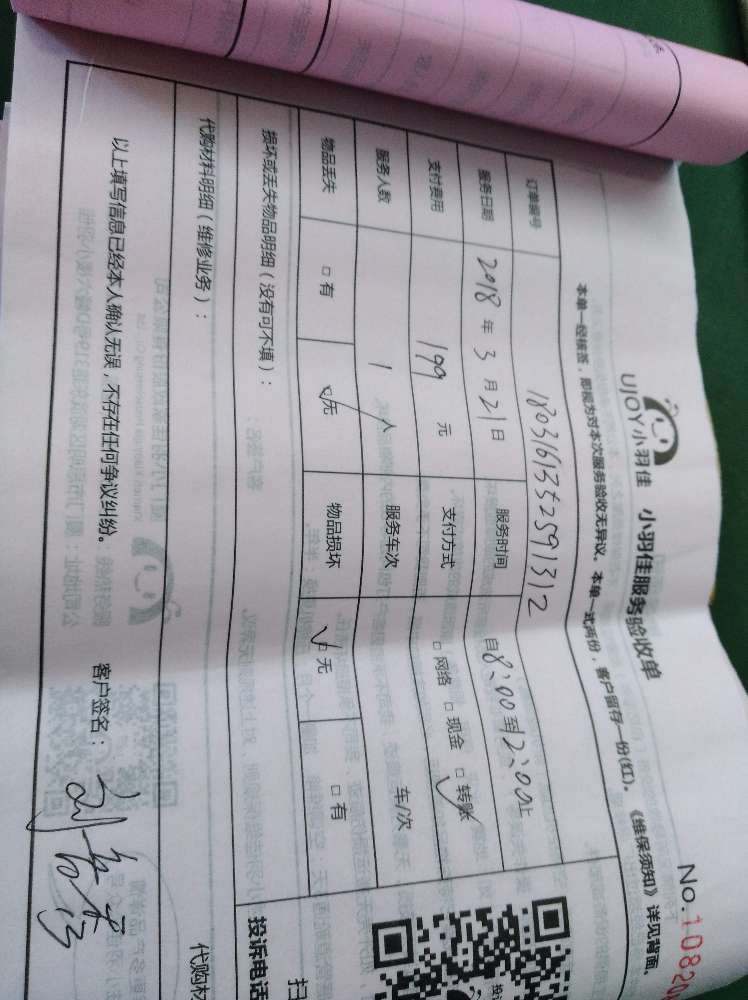 UJOY小羽佳 小羽佳服务验收单
No.10820
本单一经核签，即视为对本次服务验收无异议。本单一式两份，客户留存一份(红)。《维保须知》详见背面。
订单编号 18031613525913​12
服务日期 2018年3月21日 服务时间 自8:00到12:00止
支付费用 199元 支付方式 □网络 □现金 □转账
服务人数 1人 服务车次 车/次
物品丢失 □有 □无 物品损坏 □无 □有
损坏或丢失物品明细（没有可不填）：
代购材料明细（维修业务）：
以上填写信息已经本人确认无误，不存在任何争议纠纷。 客户签名：
投诉电话
扫
代购材